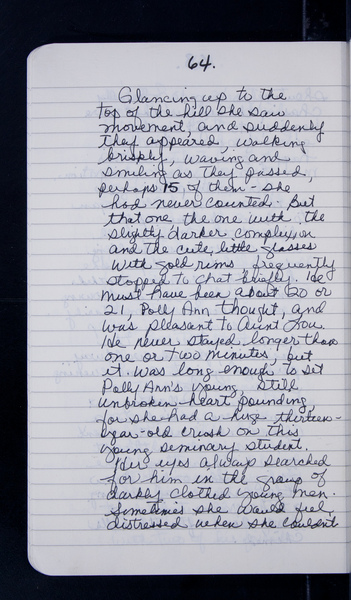 64.
Glancing up to the
top of the hill she saw
movement, and suddenly
they appeared, walking
briskly, waving and
smiling as they passed,
perhaps 15 of them - she
had never counted. But
that one the one with the
slightly darker complexion
and the cute little glasses
with gold rims frequently
stopped to chat briefly. He
must have been about 20 or
21, Polly Ann thought, and
was pleasant to Aunt Lou.
He never stayed longer than
one or two minutes, but
it was long enough to set
Polly Ann's young, still
unbroken heart pounding
for she had a huge thirteen-
year-old crush on this
young seminary student.
Her eyes always searched
for him in the group of
darkly clothed young men.
Sometimes she would feel
distressed when she couldn't